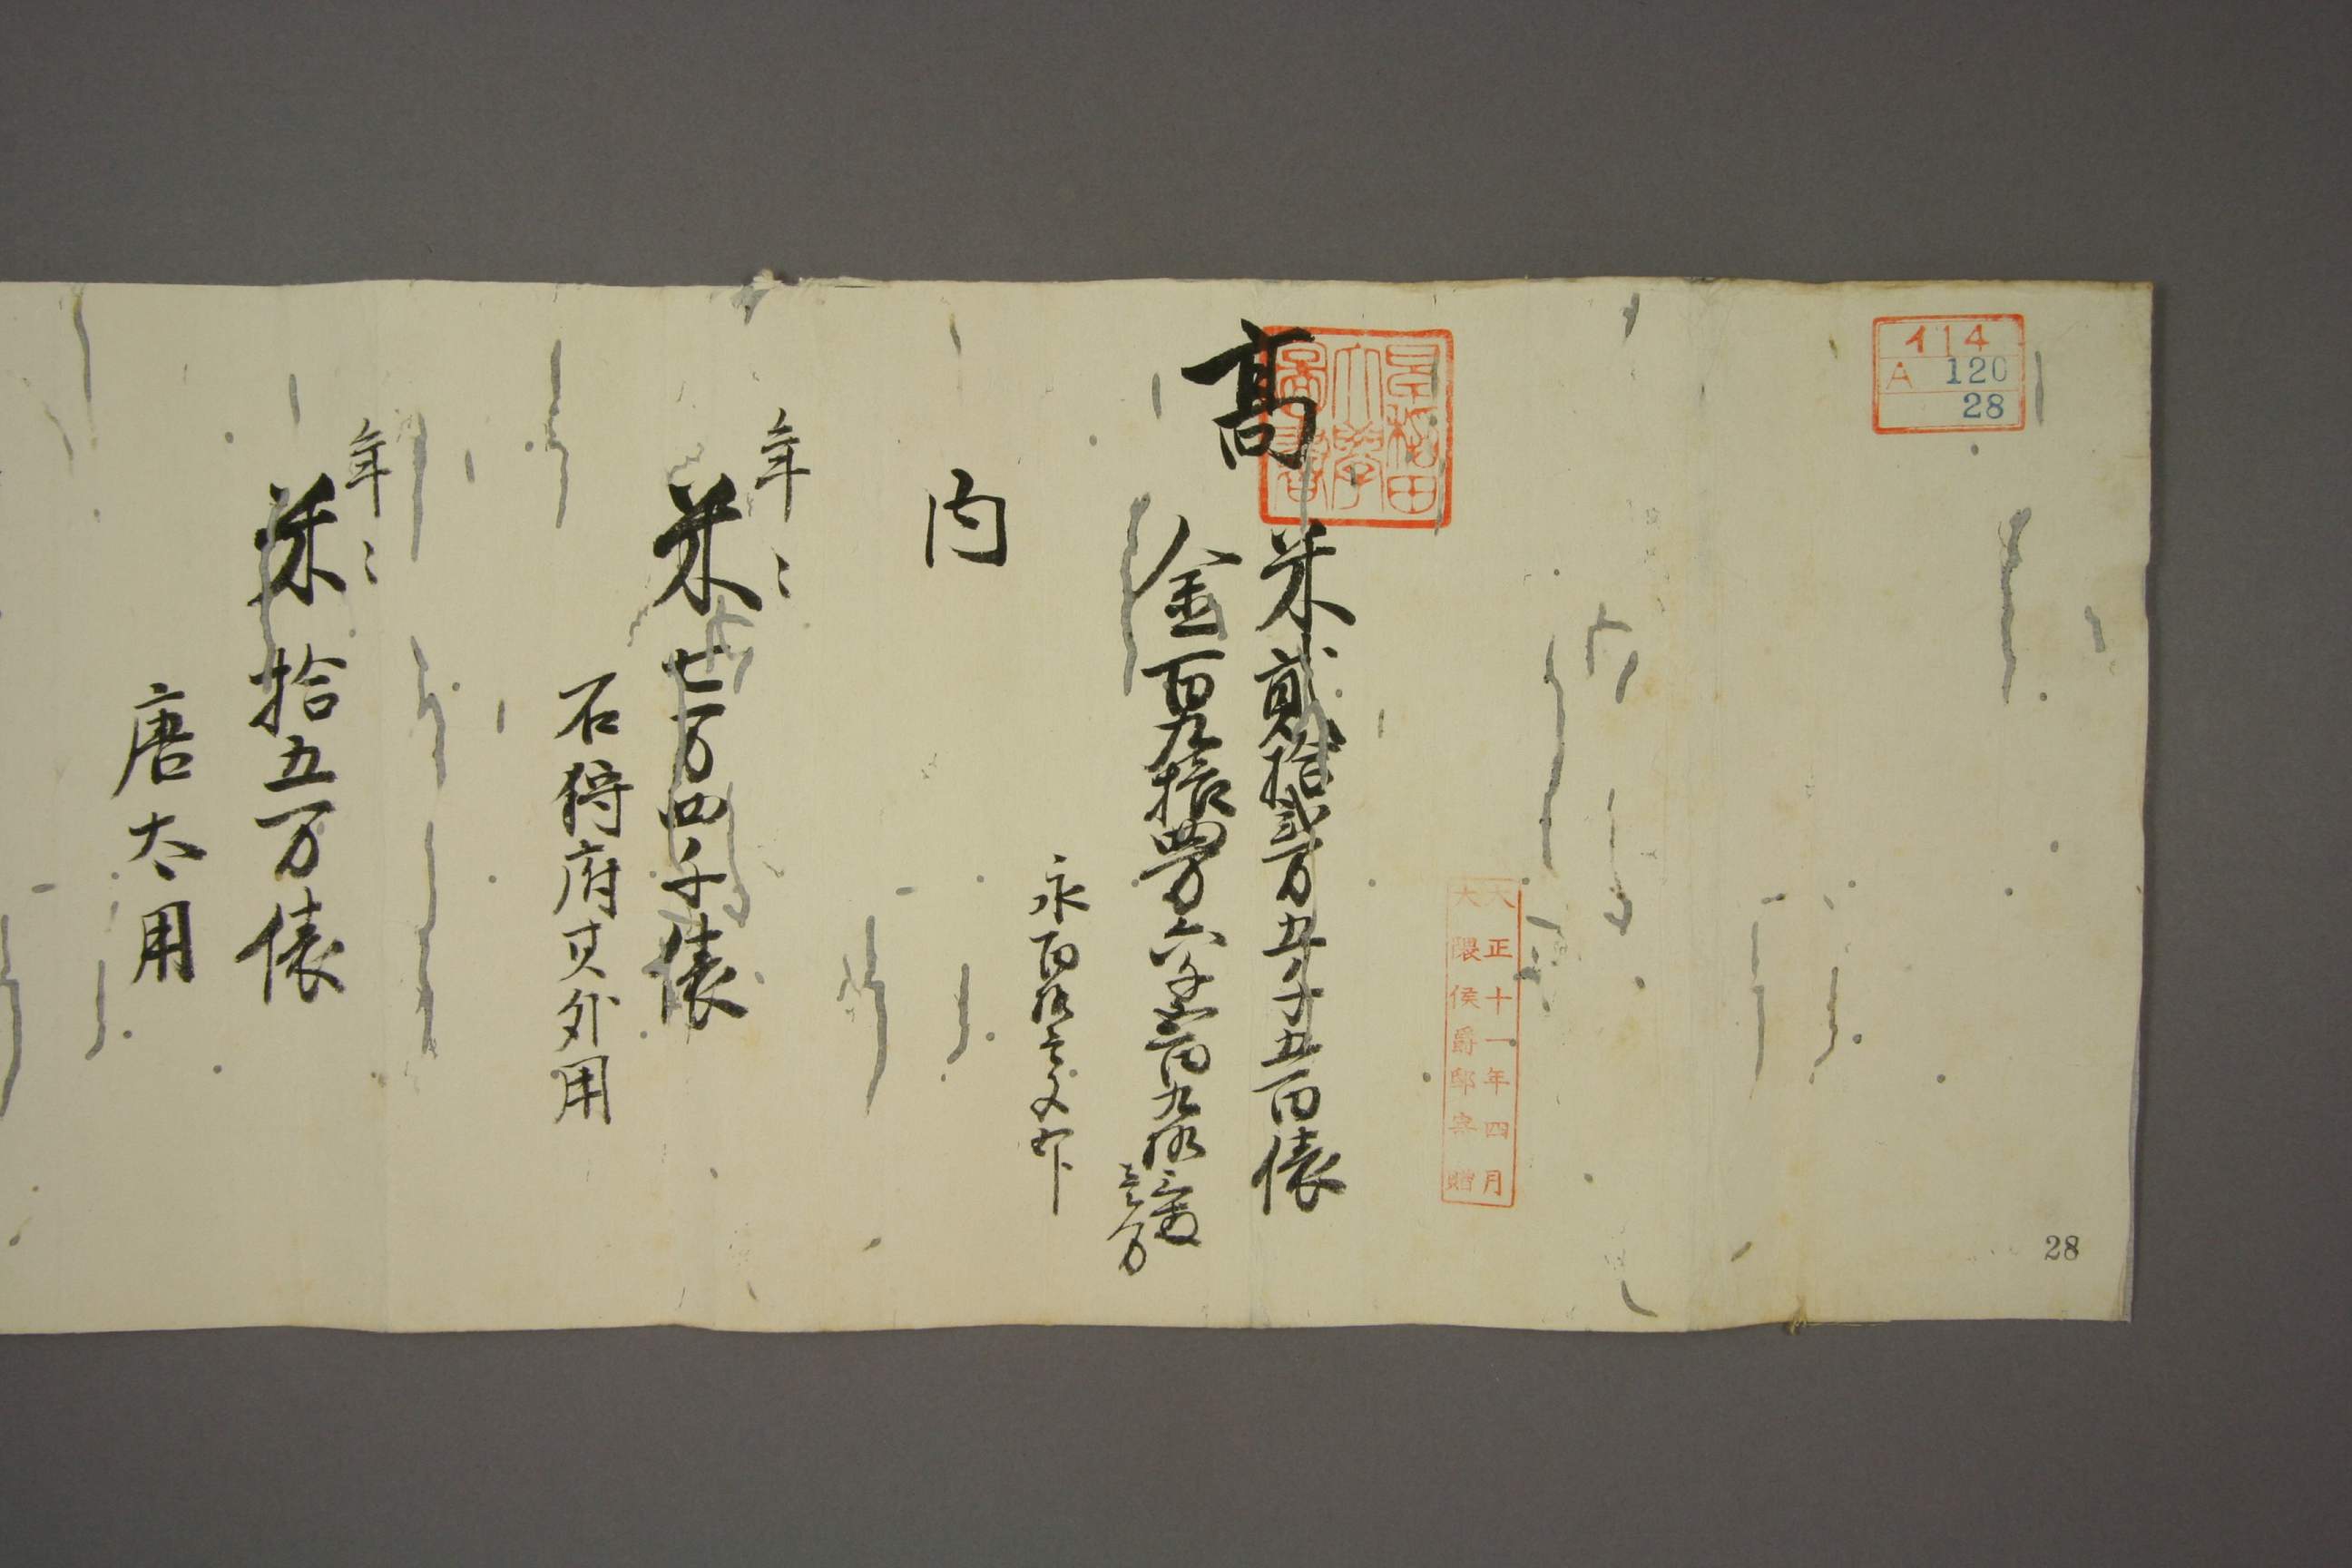 イ14
A 120
28
28
大正十一年四月
大隈侯爵邸寄贈
早稲田
大學
圖書
高
米貳拾貳万五千五百俵
金百九拾四万六千六百九拾三両
永百拾三文
内
年々
米七万四千俵
石狩府其外用
年々
米拾五万俵
唐太用